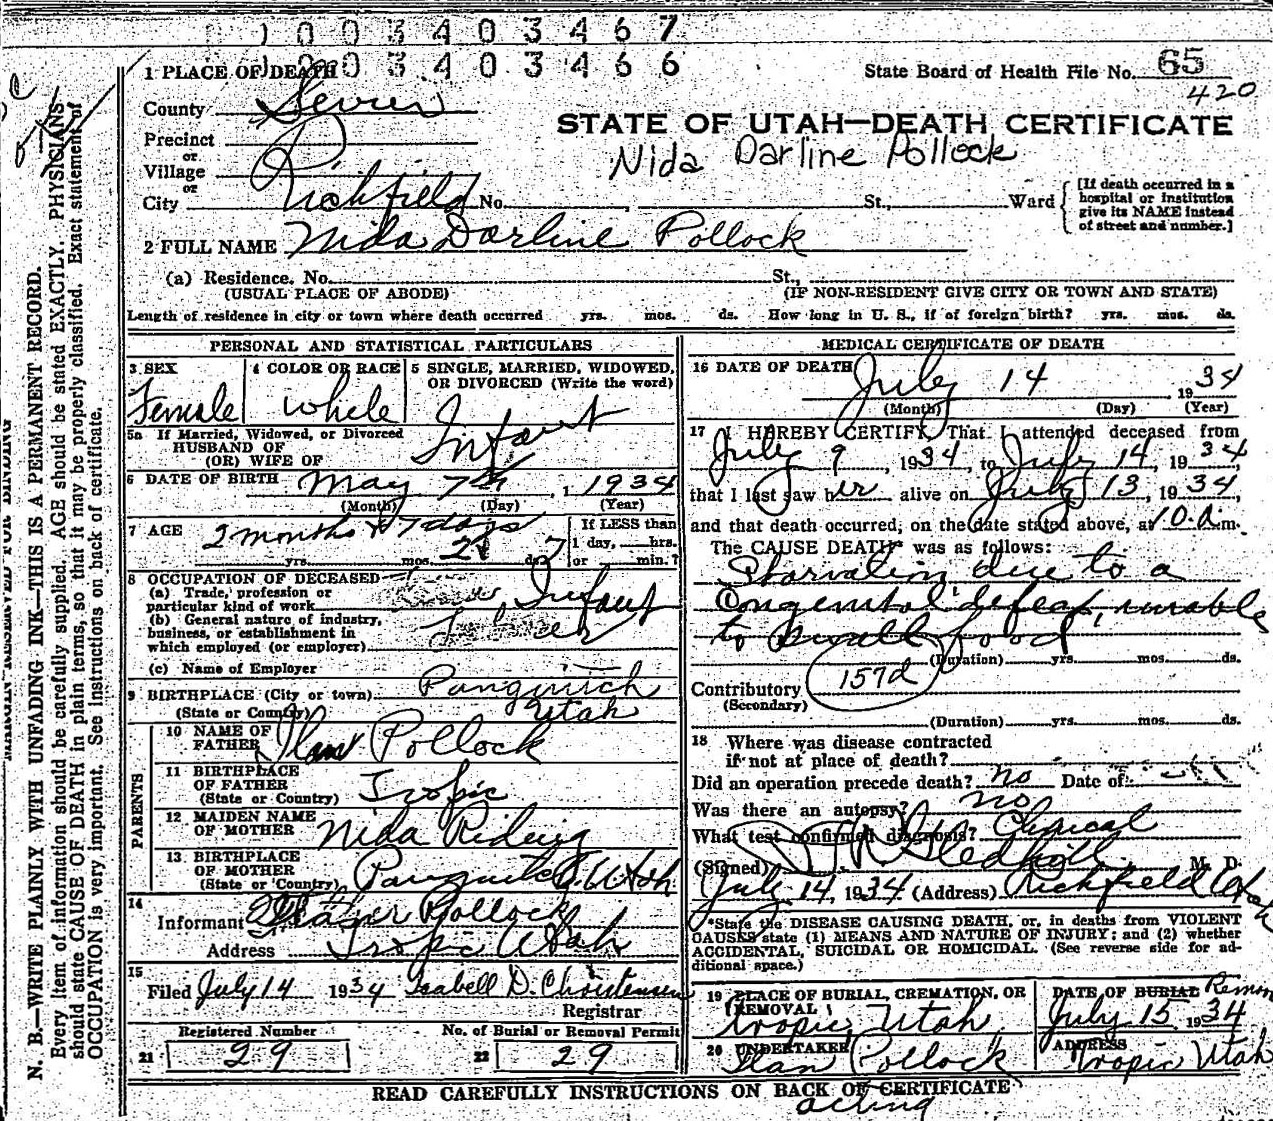 1003403467
1003403466
1 PLACE OF DEATH
State Board of Health File No. 65
420
County Sevier
STATE OF UTAH—DEATH CERTIFICATE
Nida Darline Pollock
Precinct
or
Village
or
City Richfield No. St., Ward
[If death occurred in a hospital or institution give its NAME instead of street and number.]
2 FULL NAME Nida Darline Pollock
(a) Residence. No. St.,
(USUAL PLACE OF ABODE) (IF NON-RESIDENT GIVE CITY OR TOWN AND STATE)
Length of residence in city or town where death occurred yrs. mos. ds. How long in U. S., if of foreign birth? yrs. mos. ds.
PERSONAL AND STATISTICAL PARTICULARS
3 SEX
Female
4 COLOR OR RACE
White
5 SINGLE, MARRIED, WIDOWED, OR DIVORCED (Write the word)
Infant
5a If Married, Widowed, or Divorced
HUSBAND OF
(OR) WIFE OF
6 DATE OF BIRTH May 7th, 1934
(Month) (Day) (Year)
7 AGE 2 months & 7 days
yrs. mos. 2 ds. 7
If LESS than
1 day, hrs.
or min.?
8 OCCUPATION OF DECEASED
(a) Trade, profession or
particular kind of work Infant
(b) General nature of industry,
business, or establishment in
which employed (or employer)
(c) Name of Employer
9 BIRTHPLACE (City or town) Panguitch
(State or County) Utah
PARENTS
10 NAME OF FATHER Ilan Pollock
11 BIRTHPLACE OF FATHER (State or Country) Tropic
12 MAIDEN NAME OF MOTHER Nida Riding
13 BIRTHPLACE OF MOTHER (State or Country) Panguitch Utah
14
Informant Pollock
Address Tropic Utah
15
Filed July 14 1934 Isabell D. Christensen
Registrar
Registered Number
21 29
No. of Burial or Removal Permit
22 29
MEDICAL CERTIFICATE OF DEATH
16 DATE OF DEATH July 14 1934
(Month) (Day) (Year)
17 I HEREBY CERTIFY, That I attended deceased from
July 9, 1934, to July 14, 1934,
that I last saw her alive on July 13, 1934,
and that death occurred, on the date stated above, at 10 a.m.
The CAUSE DEATH* was as follows:
Starvation due to a
Congenital defeat, unable
to swall food,
(Duration) yrs. mos. ds.
157d
Contributory
(Secondary)
(Duration) yrs. mos. ds.
18 Where was disease contracted
if not at place of death?
Did an operation precede death? no Date of:
Was there an autopsy? no
What test confirmed diagnosis? Clinical
(Signed) Gledhill M. D.
July 14, 1934 (Address) Richfield Utah
*State the DISEASE CAUSING DEATH, or, in deaths from VIOLENT
CAUSES state (1) MEANS AND NATURE OF INJURY; and (2) whether
ACCIDENTAL, SUICIDAL OR HOMICIDAL. (See reverse side for ad-
ditional space.)
19 PLACE OF BURIAL, CREMATION, OR REMOVAL
Tropic Utah
DATE OF BURIAL
July 15 1934
20 UNDERTAKER Ilan Pollock
ADDRESS Tropic Utah
READ CAREFULLY INSTRUCTIONS ON BACK OF CERTIFICATE
acting
MARGIN RESERVED FOR BINDING
N. B.—WRITE PLAINLY WITH UNFADING INK—THIS IS A PERMANENT RECORD.
Every item of information should be carefully supplied. AGE should be stated EXACTLY. PHYSICIANS
should state CAUSE OF DEATH in plain terms, so that it may be properly classified. Exact statement of
OCCUPATION is very important. See instructions on back of certificate.